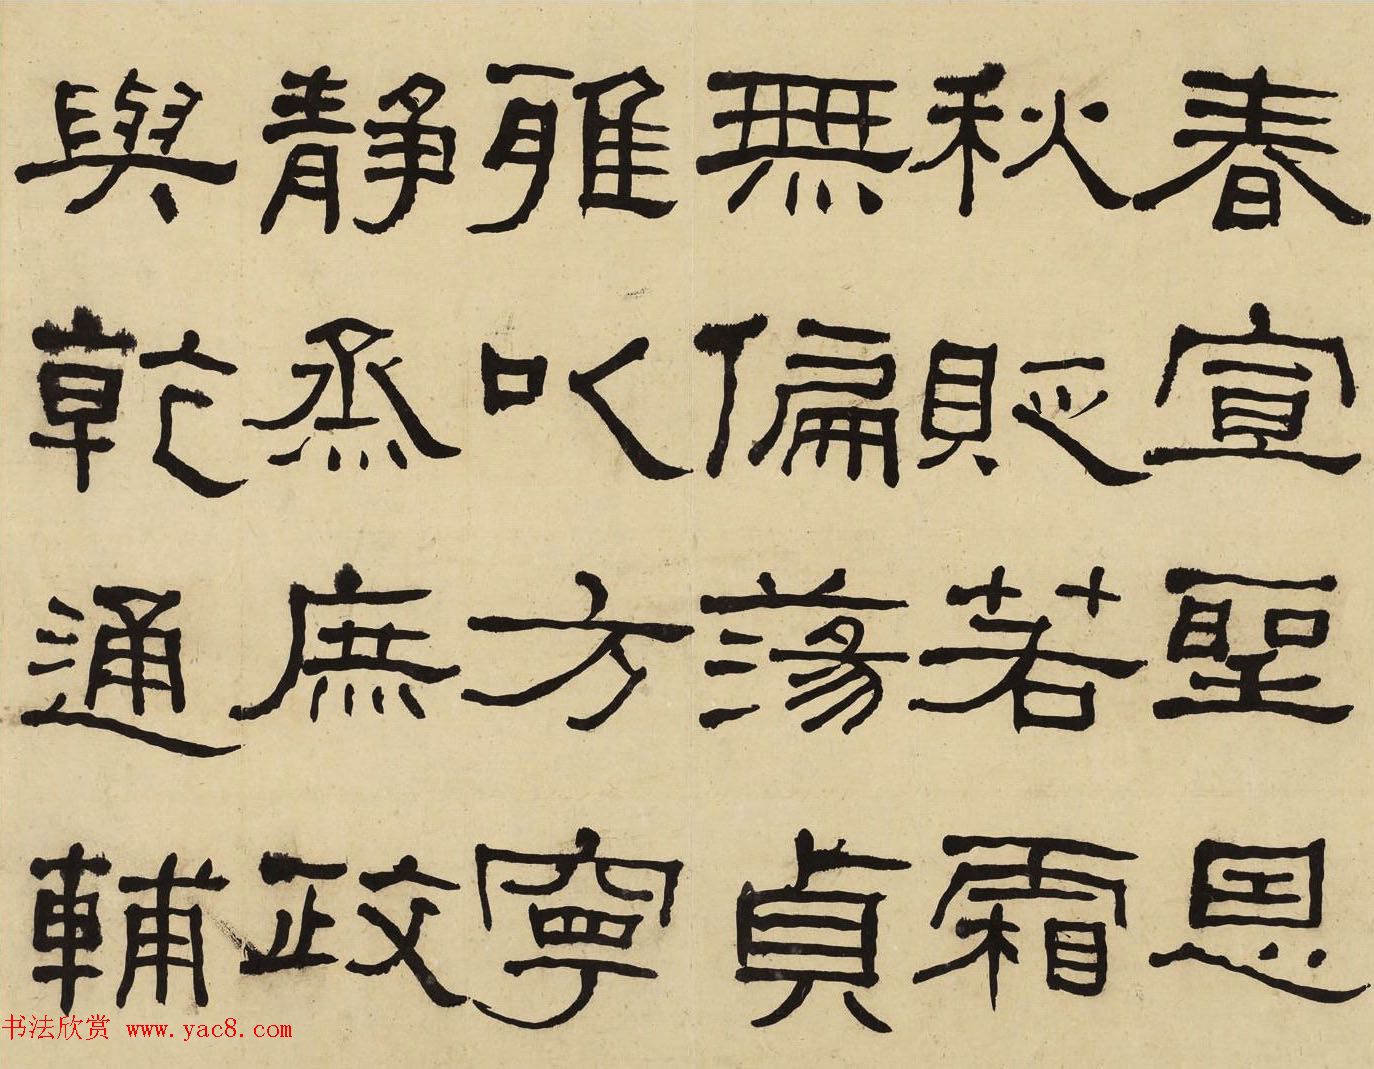 春宣聖恩
秋貶若霜
無偏蕩貞
雅以方寧
靜烝庶政
與乾通輔
书法欣赏 www.yac8.com